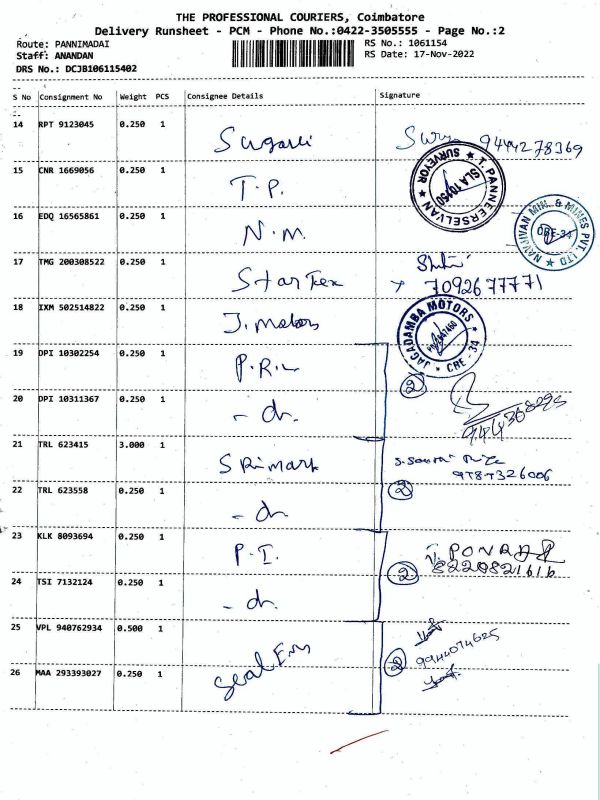 THE PROFESSIONAL COURIERS, Coimbatore
Delivery Runsheet - PCM - Phone No.:0422-3505555 - Page No.:2
Route: PANNIMADAI
RS No.: 1061154
Staff: ANANDAN
RS Date: 17-Nov-2022
DRS No.: DCJB106115402
S No Consignment No Weight PCS Consignee Details Signature
14 RPT 9123045 0.250 1 9444278369
T. PANNEERSELVAN SURVEYOR
15 CNR 1669056 0.250 1 T.P.
16 EDQ 16565861 0.250 1 N.M.
NANJIVAN MIM. & MIMES PVT. LTD CBE-34
17 TMG 200308522 0.250 1 StarTex
7092677771
18 IXM 502514822 0.250 1 J. motors
JAGADAMBA MOTORS CBE - 34
19 DPI 10302254 0.250 1 2
20 DPI 10311367 0.250 1 - do.
21 TRL 623415 3.000 1 SPimark
9787326006
22 TRL 623558 0.250 1 - do. 2
23 KLK 8093694 0.250 1 P.I.
8220821616
24 TSI 7132124 0.250 1 - do. 2
25 VPL 940762934 0.500 1
9944074625
26 MAA 293393027 0.250 1 2